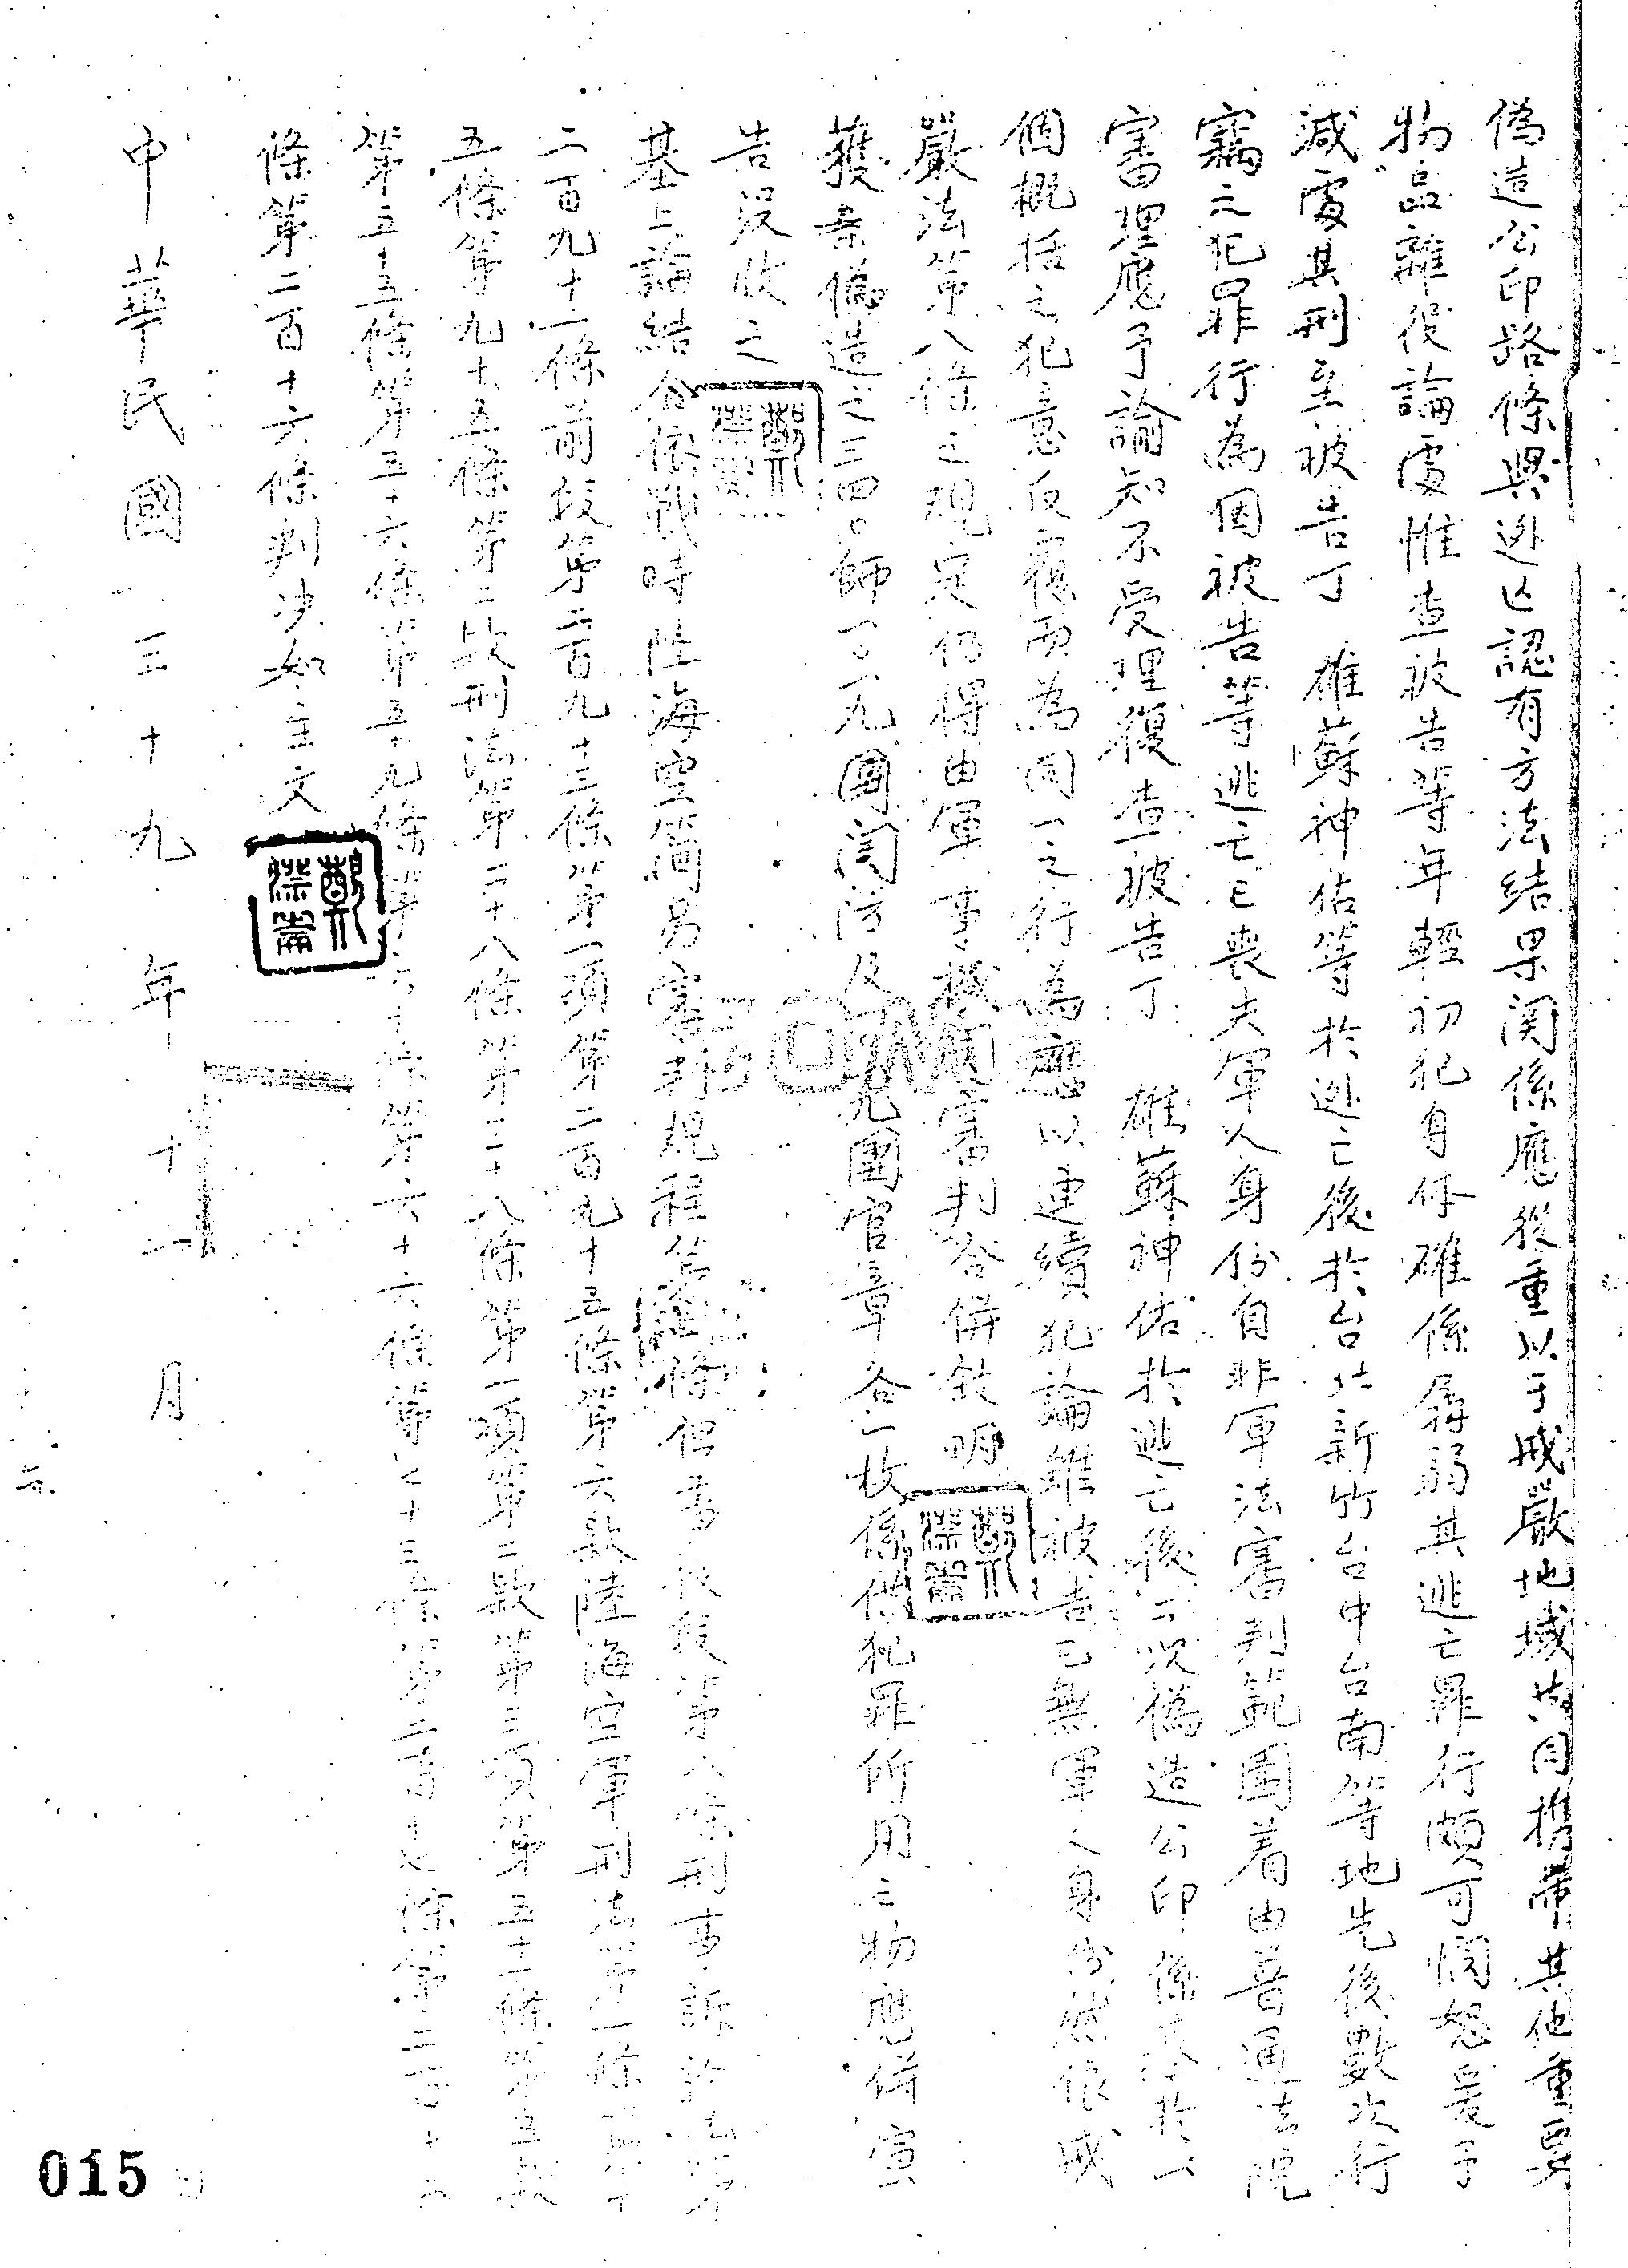 偽造公印路條與逃亡認有方法結果関係應從重以于戒嚴地域共同携帶其他重要
物品離役論處惟查被告等年輕初犯身体確係孱弱其逃亡罪行頗可憫恕爰予
減處其刑至被告丁 雄蘇神祐等於逃亡後於台北新竹台中台南等地先後數次行
竊之犯罪行為因被告等逃亡已喪失軍人身份自非軍法審判範圍着由普通法院
審理應予諭知不受理復查被告丁 雄蘇神佑於逃亡後二次偽造公印係基於一
個概括之犯意反覆而為同一之行為應以連續犯論雖被告已無軍人身份然依戒
嚴法第八條之規定仍得由軍事機関審判合併敘明
獲案偽造之三四〇師一〇一九團関防及一〇一九團官章各一枚係供犯罪所用之物應併宣
告沒收之
基上論結合依戰時陸海空簡易審判規程第 條但書後段第八條刑事訴訟法第
二百九十一條前段第二百九十三條第一項第二百九十五條第六款陸海空軍刑法第 條第
五條第九十五條第二款刑法第二十八條第三十八條第一項第二款第三項第五十一條第五款
第五十五條第五十六條第五十九條第六十條第六十六條第七十三條第二百十七條第二百十
條第二百十六條判決如主文
中華民國三十九年十一月
015